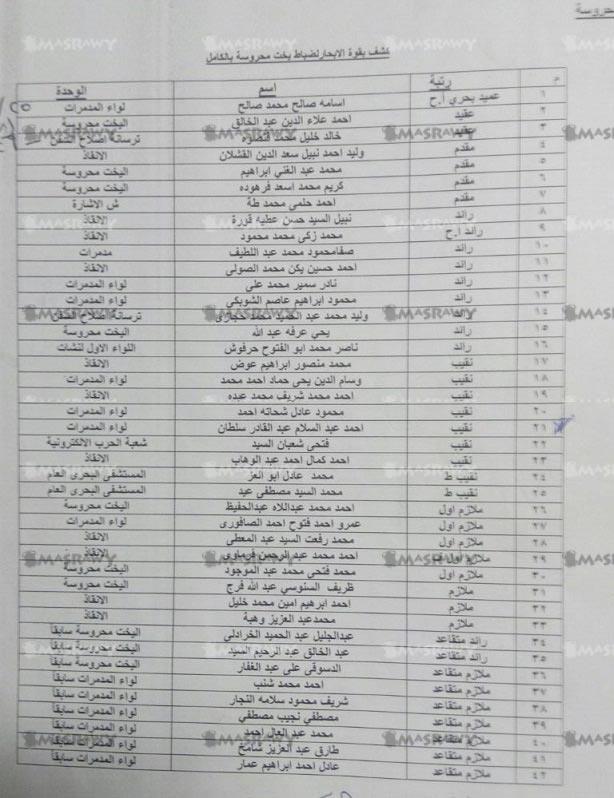 محروسة
كشف بقوة الابحار لضباط يخت محروسة بالكامل
م رتبة اسم الوحدة
١ عميد بحري أ.ح اسامه صالح محمد صالح لواء المدمرات
٢ عقيد احمد علاء الدين عبد الخالق اليخت محروسة
٣ عقيد خالد خليل محمد ترسانة اصلاح السفن
٤ مقدم وليد احمد نبيل سعد الدين القشلان الانقاذ
٥ مقدم محمد عبد الغني ابراهيم اليخت محروسة
٦ مقدم كريم محمد اسعد فرهوده اليخت محروسة
٧ مقدم احمد حلمى محمد طة ش الاشارة
٨ رائد نبيل السيد حسن عطيه قورة الانقاذ
٩ رائد أ.ح محمد زكى محمد محمود الانقاذ
١٠ رائد صفامحمود محمد عبد اللطيف مدمرات
١١ رائد احمد حسين يكن محمد الصولى الانقاذ
١٢ رائد نادر سمير محمد على لواء المدمرات
١٣ رائد محمود ابراهيم عاصم الشوبكي لواء المدمرات
١٤ رائد وليد محمد عبد الحميد محمد حجازى ترسانة اصلاح السفن
١٥ رائد يحي عرفه عبد الله اليخت محروسة
١٦ رائد ناصر محمد ابو الفتوح حرفوش اللواء الاول لنشات
١٧ نقيب محمد منصور ابراهيم عوض الانقاذ
١٨ نقيب وسام الدين يحي حماد احمد محمد لواء المدمرات
١٩ نقيب احمد محمد شريف محمد عبده الانقاذ
٢٠ نقيب محمود عادل شحاته احمد لواء المدمرات
٢١ نقيب احمد عبد السلام عبد القادر سلطان لواء المدمرات
٢٢ نقيب فتحى شعبان السيد شعبة الحرب الالكترونية
٢٣ نقيب احمد كمال احمد عبد الوهاب الانقاذ
٢٤ نقيب ط محمد عادل ابو العز المستشفى البحرى العام
٢٥ نقيب ط محمد السيد مصطفى عيد المستشفى البحرى العام
٢٦ ملازم اول احمد محمد عبداللاه عبدالحفيظ اليخت محروسة
٢٧ ملازم اول عمرو احمد فتوح احمد الصافورى لواء المدمرات
٢٨ ملازم اول محمد رفعت السيد عبد المعطى الانقاذ
٢٩ ملازم اول احمد محمد عبد الرحمن فرماوى الانقاذ
٣٠ ملازم اول محمد فتحى محمد عبد الموجود اليخت محروسة
٣١ ملازم ظريف السنوسي عبد الله فرج اليخت محروسة
٣٢ ملازم احمد ابرهيم امين محمد خليل الانقاذ
٣٣ ملازم محمدعبد العزيز وهبة الانقاذ
٣٤ رائد متقاعد عبدالجليل عبد الحميد الخرادلى اليخت محروسة سابقا
٣٥ رائد متقاعد عبد الخالق عبد الرحيم السيد اليخت محروسة سابقا
٣٦ ملازم متقاعد الدسوقى على عبد الغفار اليخت محروسة سابقا
٣٧ ملازم متقاعد احمد محمد شنب لواء المدمرات سابقا
٣٨ ملازم متقاعد شريف محمود سلامه النجار لواء المدمرات سابقا
٣٩ ملازم متقاعد مصطفي نجيب مصطفي لواء المدمرات سابقا
٤٠ ملازم متقاعد محمد عبد العال احمد لواء المدمرات سابقا
٤١ ملازم متقاعد طارق عبد العزيز شامخ لواء المدمرات سابقا
٤٢ ملازم متقاعد عادل احمد ابراهيم عمار لواء المدمرات سابقا